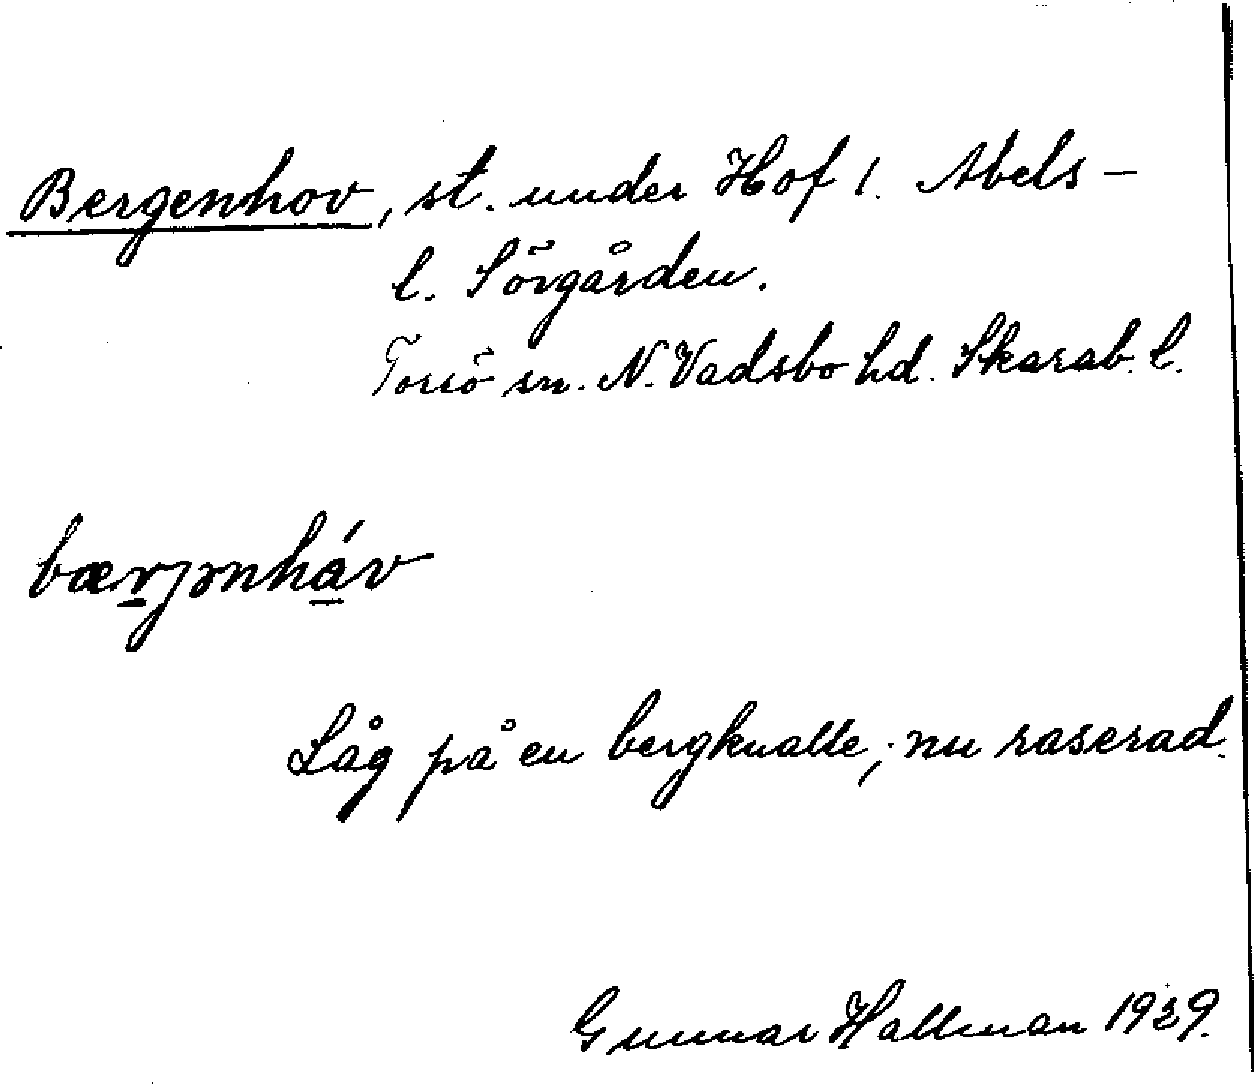 Bergenhov, st. under Hof 1. Abels-
l. Sörgården.
Torsö sn. N. Vadsbo hd. Skarab. l.
bærjənháv
Låg på en bergknalle; nu raserad.
Gunnar Hallman 1939.